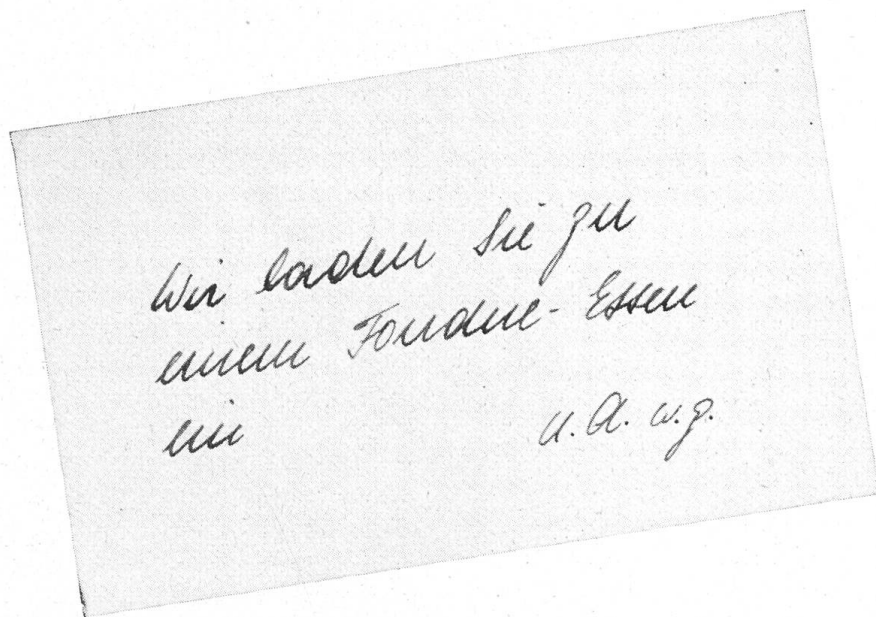 Wir laden Sie zu
einem Fondue-Essen
ein u. A. w. g.